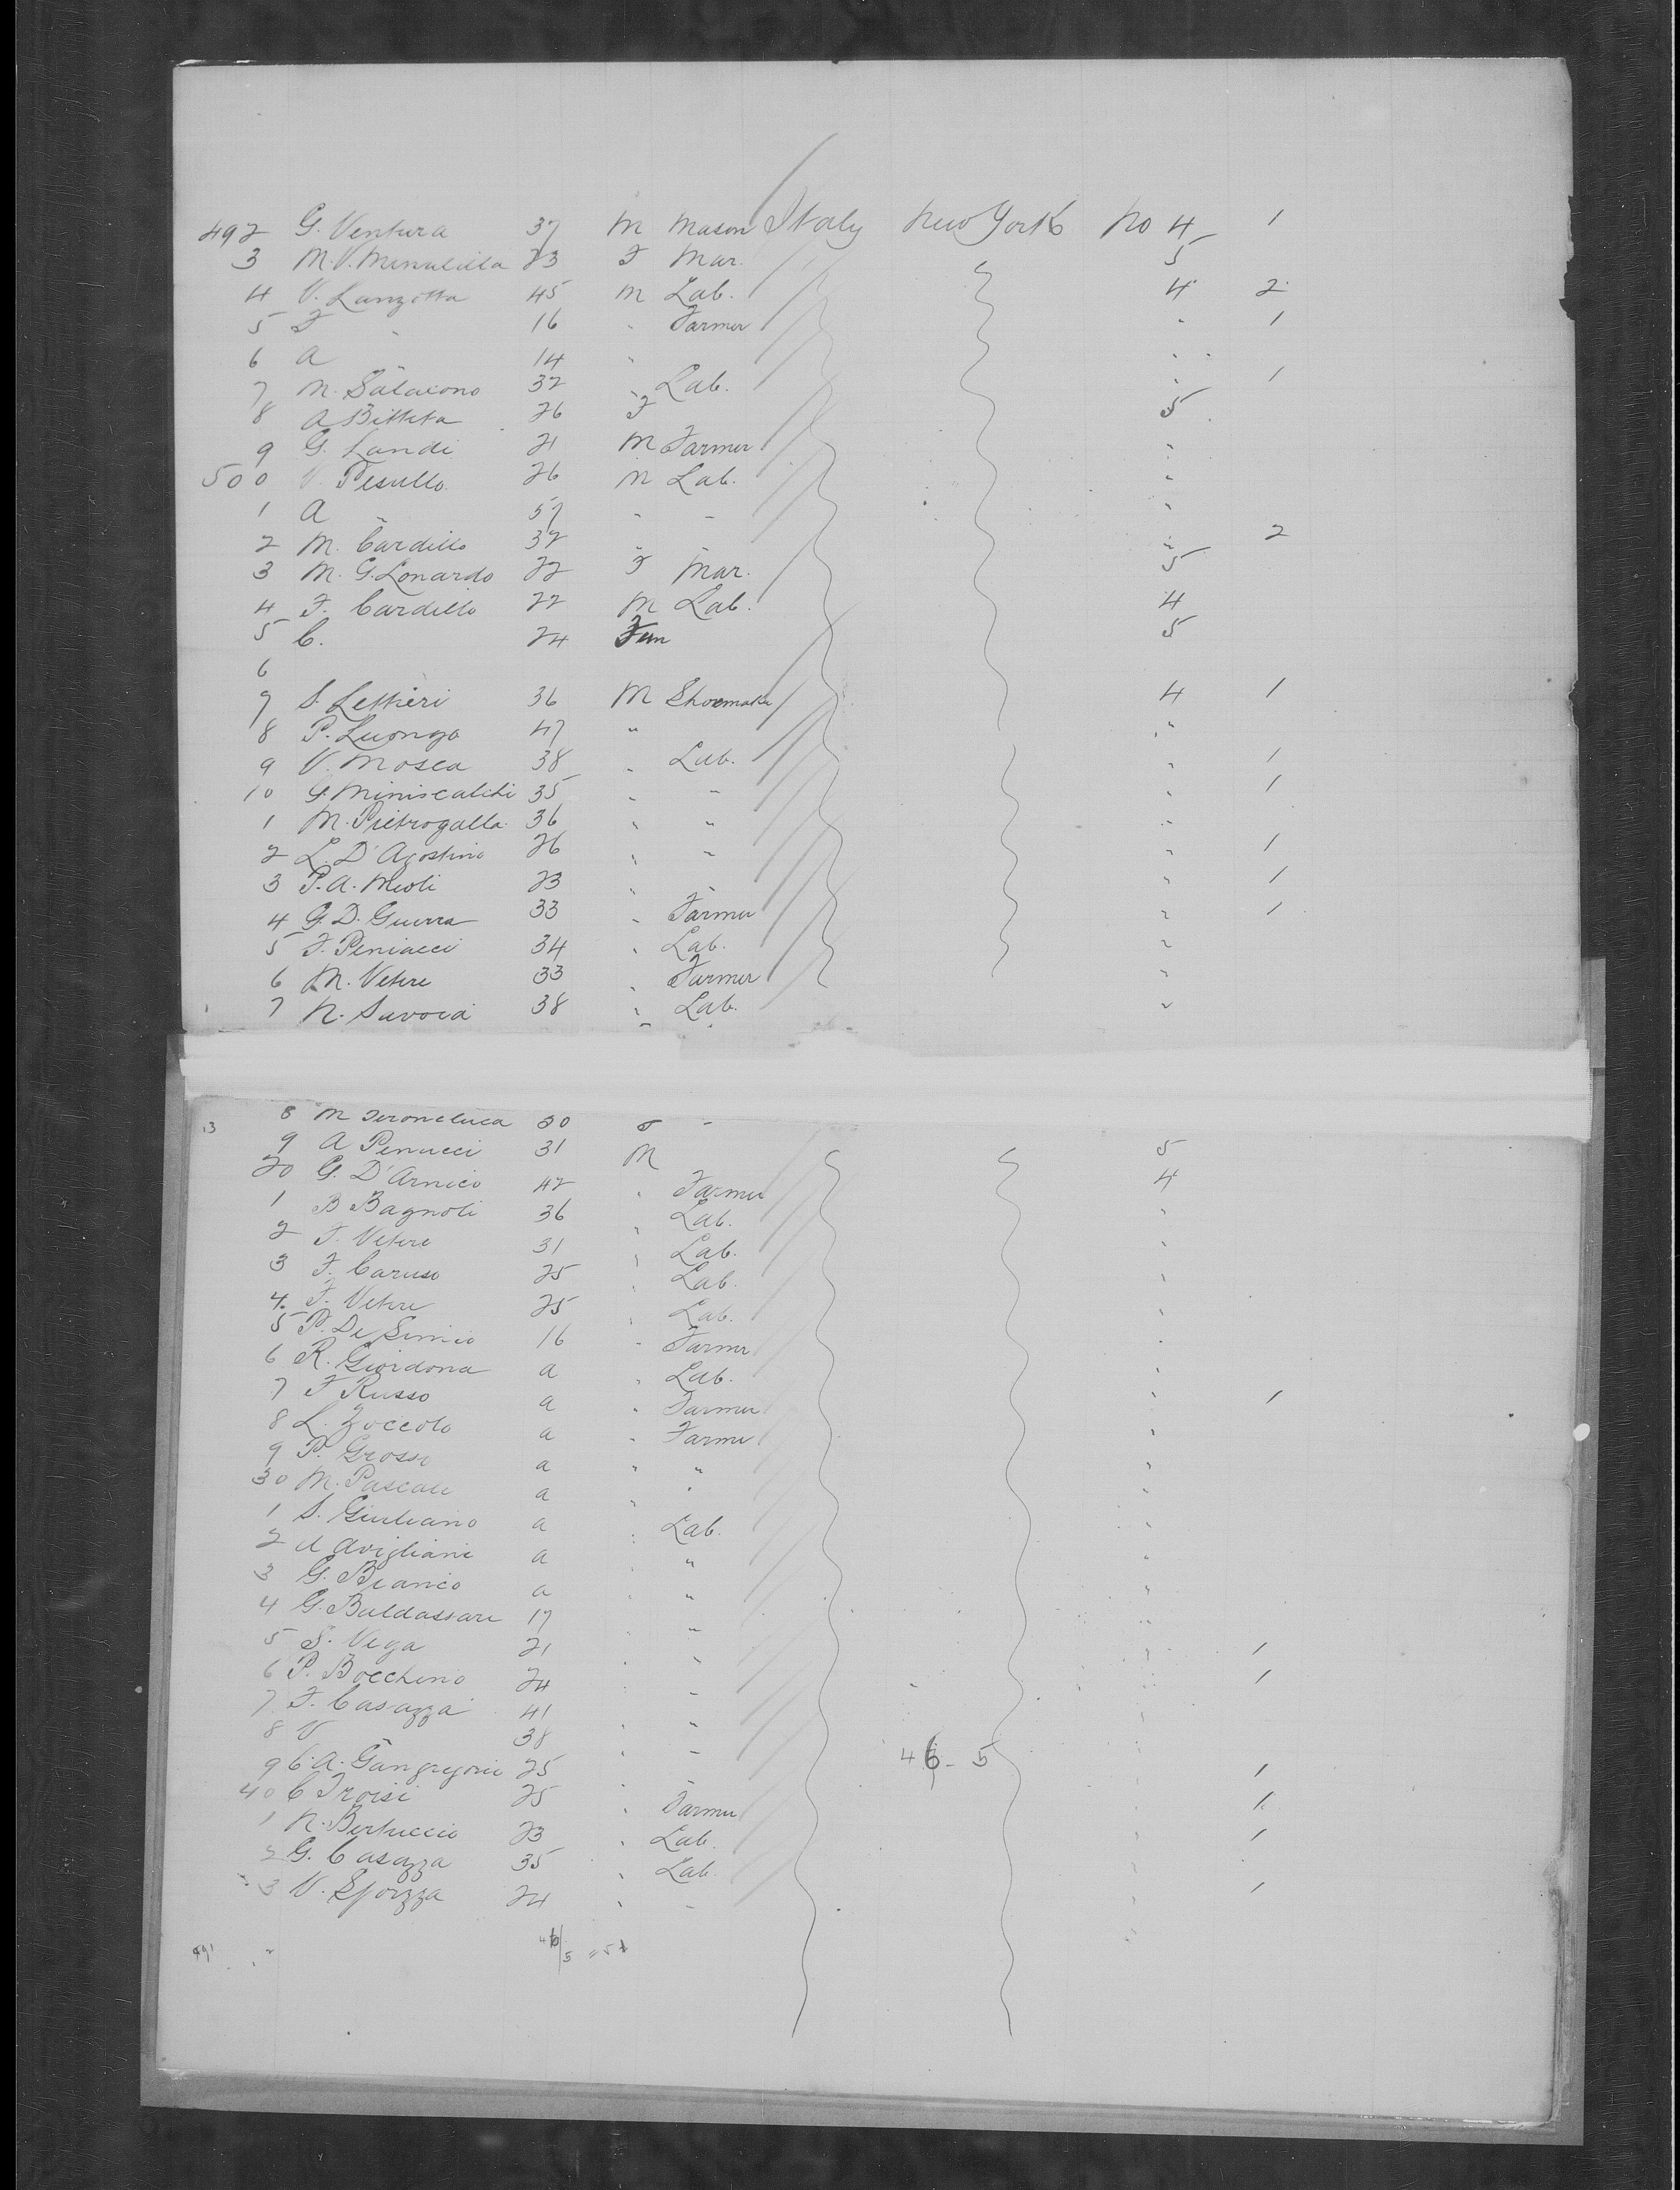 492 G. Ventura 37 M Mason Italy New York No 4 1
3 M.V. 23 F Mar. 5
4 V. Lanzotta 45 M Lab. 4 2
5 F " 16 " Farmer " 1
6 A " 14 " " "
7 N. 32 " Lab. " 1
8 A Bitteta 26 F 5
9 G. Landi 21 M Farmer "
500 V. Pesullo 26 M Lab. "
1 A " 57 " " "
2 M. Cardillo 32 " " " 2
3 M. G. Lonardo 22 F Mar. 5
4 F. Cardillo 22 M Lab. 4
5 C. 24 Fem 5
6
7 S. Lettieri 36 M Shoemaker 4 1
8 P. Luongo 47 " "
9 V. Mosca 38 " Lab. " 1
10 G. 35 " " " 1
1 M. Pietrogalla 36 " " "
2 L. D'Agostino 26 " " " 1
3 P. A. Meoli 23 " " " 1
4 G. D. Guerra 33 " Farmer " 1
5 F. Peniacci 34 " Lab. "
6 M. Vetere 33 " Farmer "
7 N. Savoia 38 " Lab. "
8 M 30 F "
9 A Penucci 31 M 5
20 G. D'Amico 42 " Farmer 4
1 B Bagnoli 36 " Lab. "
2 F. Vetere 31 " Lab. "
3 F. Caruso 25 " Lab. "
4 F. Vetere 25 " Lab. "
5 P. De 16 " Farmer "
6 R. Giordona a " Lab. "
7 F Russo a " Farmer " 1
8 L. Zoccolo a " Farmer "
9 P. Grossi a " " "
30 M. Pascale a " " "
1 S. Giuliano a " Lab. "
2 A Avigliani a " " "
3 G. Bianco a " " "
4 G. Baldassare 17 " " "
5 S. Vega 21 " " " 1
6 P. Bocchino 24 " " " 1
7 F. Casazza 41 " " "
8 V " 38 " " "
46-5
9 C. A. Gangregorie 25 " " " 1
40 C Troisi 25 " Farmer " 1
1 N. Bertuccio 23 " Lab. " 1
2 G. Casazza 35 " Lab. "
3 V. 24 " " " 1
491 46/5 = 51